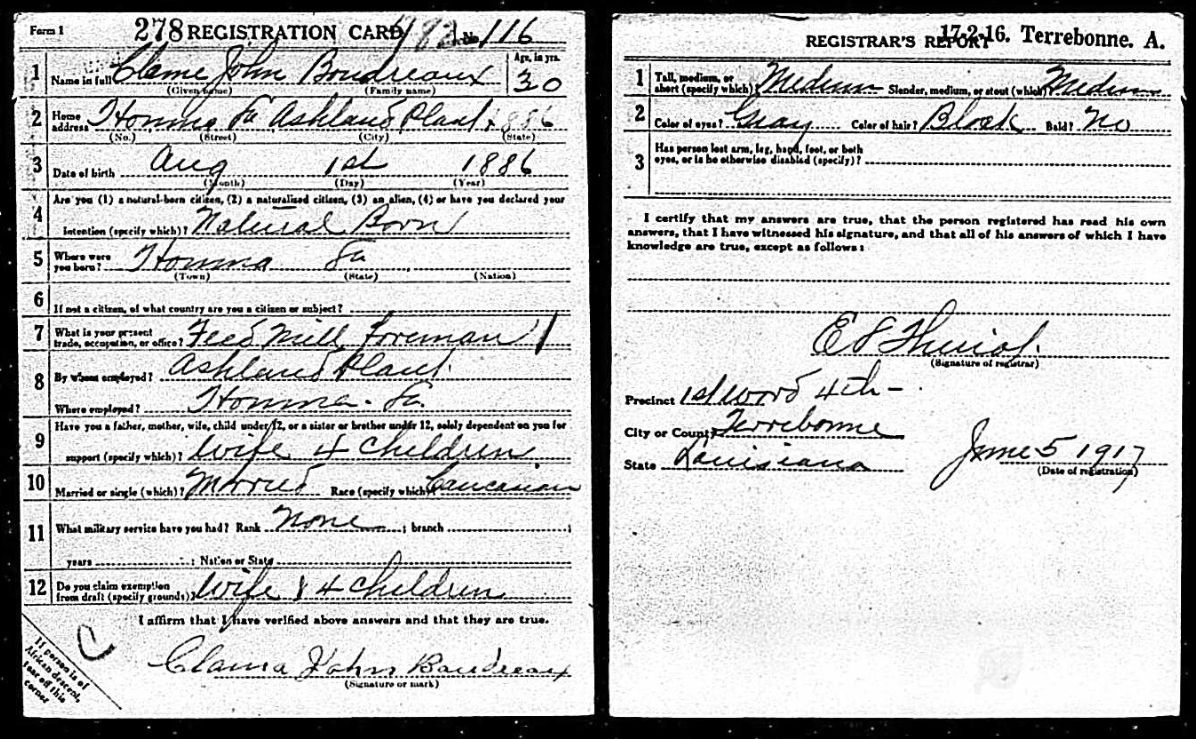 Form 1
278 REGISTRATION CARD No. 116
1 Name in full Clame John Boudreaux Age, in yrs. 30
(Given name) (Family name)
2 Home address Homma La Ashland Plant
(No.) (Street) (City) (State)
3 Date of birth Aug 1st 1886
(Month) (Day) (Year)
4 Are you (1) a natural-born citizen, (2) a naturalized citizen, (3) an alien, (4) or have you declared your
intention (specify which)? Natural Born
5 Where were you born? Homma La
(Town) (State) (Nation)
6 If not a citizen, of what country are you a citizen or subject?
7 What is your present trade, occupation, or office? Feed Mill foreman
8 By whom employed? Ashland Plant.
Where employed? Homma. La.
9 Have you a father, mother, wife, child under 12, or a sister or brother under 12, solely dependent on you for
support (specify which)? Wife 4 Children
10 Married or single (which)? Married Race (specify which)? Caucasian
11 What military service have you had? Rank None ; branch ;
years ; Nation or State
12 Do you claim exemption from draft (specify grounds)? Wife & 4 Children
I affirm that I have verified above answers and that they are true.
Clama John Baudreaux
(Signature or mark)
If person is of
African descent,
tear off this
corner
17-2-16. Terrebonne. A.
REGISTRAR'S REPORT
1 Tall, medium, or short (specify which)? Medium Slender, medium, or stout (which)? Medium
2 Color of eyes? Gray Color of hair? Black Bald? No
3 Has person lost arm, leg, hand, foot, or both
eyes, or is he otherwise disabled (specify)?
I certify that my answers are true, that the person registered has read his own
answers, that I have witnessed his signature, and that all of his answers of which I have
knowledge are true, except as follows:
(Signature of registrar)
Precinct 1st Word 4th
City or County Terrebonne
State Louisiana June 5 1917
(Date of registration)